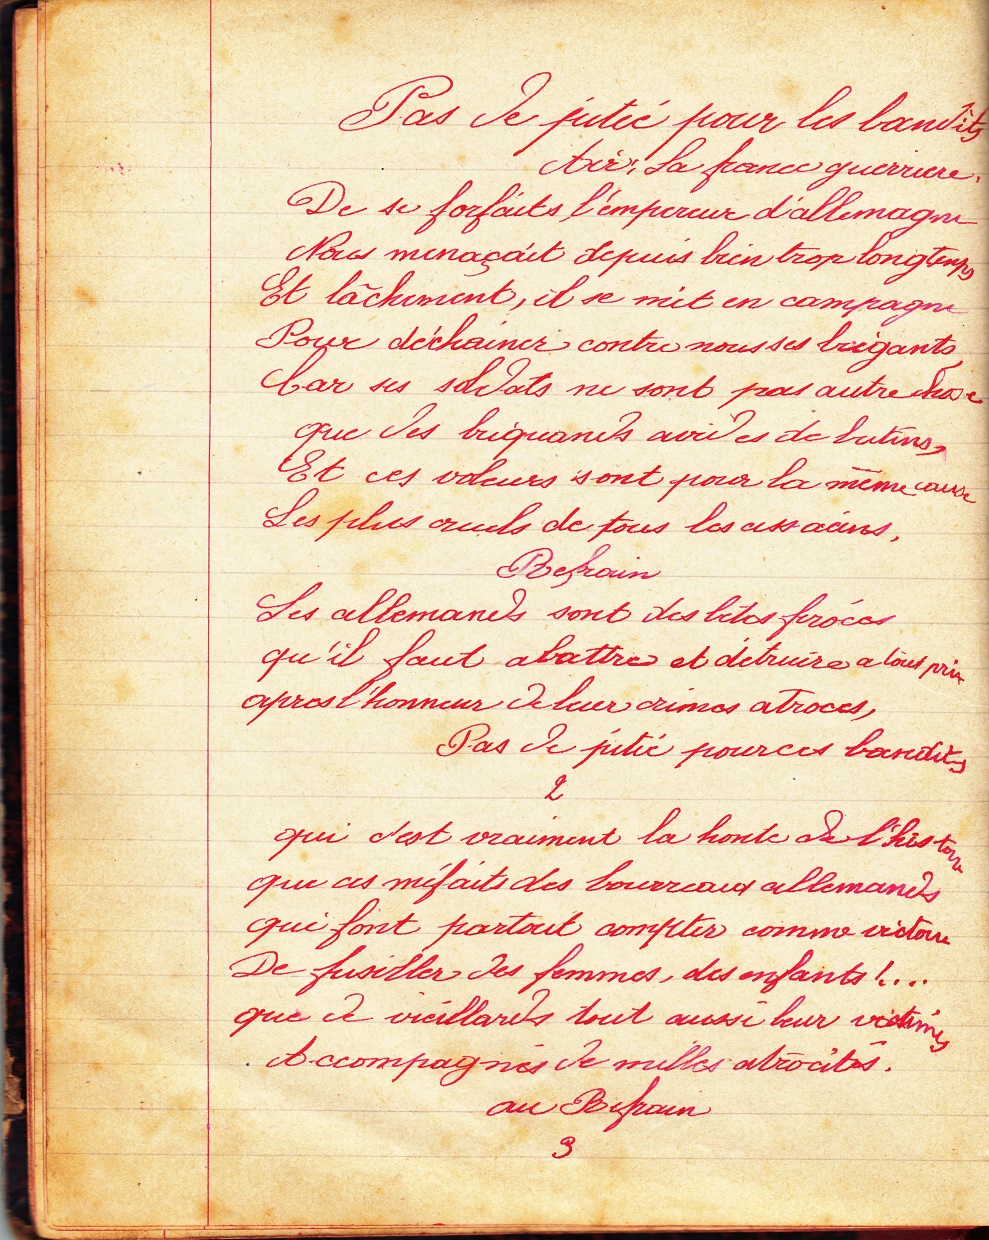 Pas de pitié pour les bandits
Air : La france guerriere.
De se forfaits l'émpereur d'allemagne
Nous menaçait depuis bien trop longtemps
Et lâchement, il se mit en campagne
Pour déchainer contre nous ses brigants,
Car ses soldats ne sont pas autre chose
que des briquands avides de butins,
Et ces voleurs sont pour la même cause
Les plus cruels de tous les assasins,
Refrain
Les allemands sont des bêtes fróces
qu'il faut abattre et détruire a tous prix
apres l'honneur de leur crimes atroces,
Pas de pitié pour ces bandits
2
qui c'est vraiment la honte de l'histoire
que ces méfaits des bourreaux allemands
qui font partout compter comme victoire
De fusiller des femmes, des enfants !...
que de vieillards tout aussi leur victimes
Accompagnés de milles atrocités.
au Refrain
3